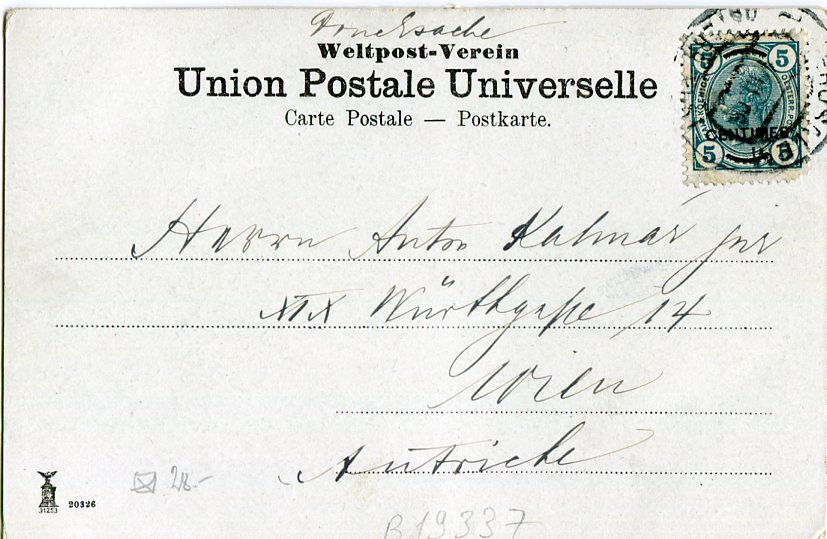 Drucksache
Weltpost-Verein
Union Postale Universelle
Carte Postale — Postkarte.
5 5
CENTIMES
5 5
Herrn Anton Kalmár jun
XIX Würthgasse 14
Wien
Autriche
28.-
31253
20326
B19337